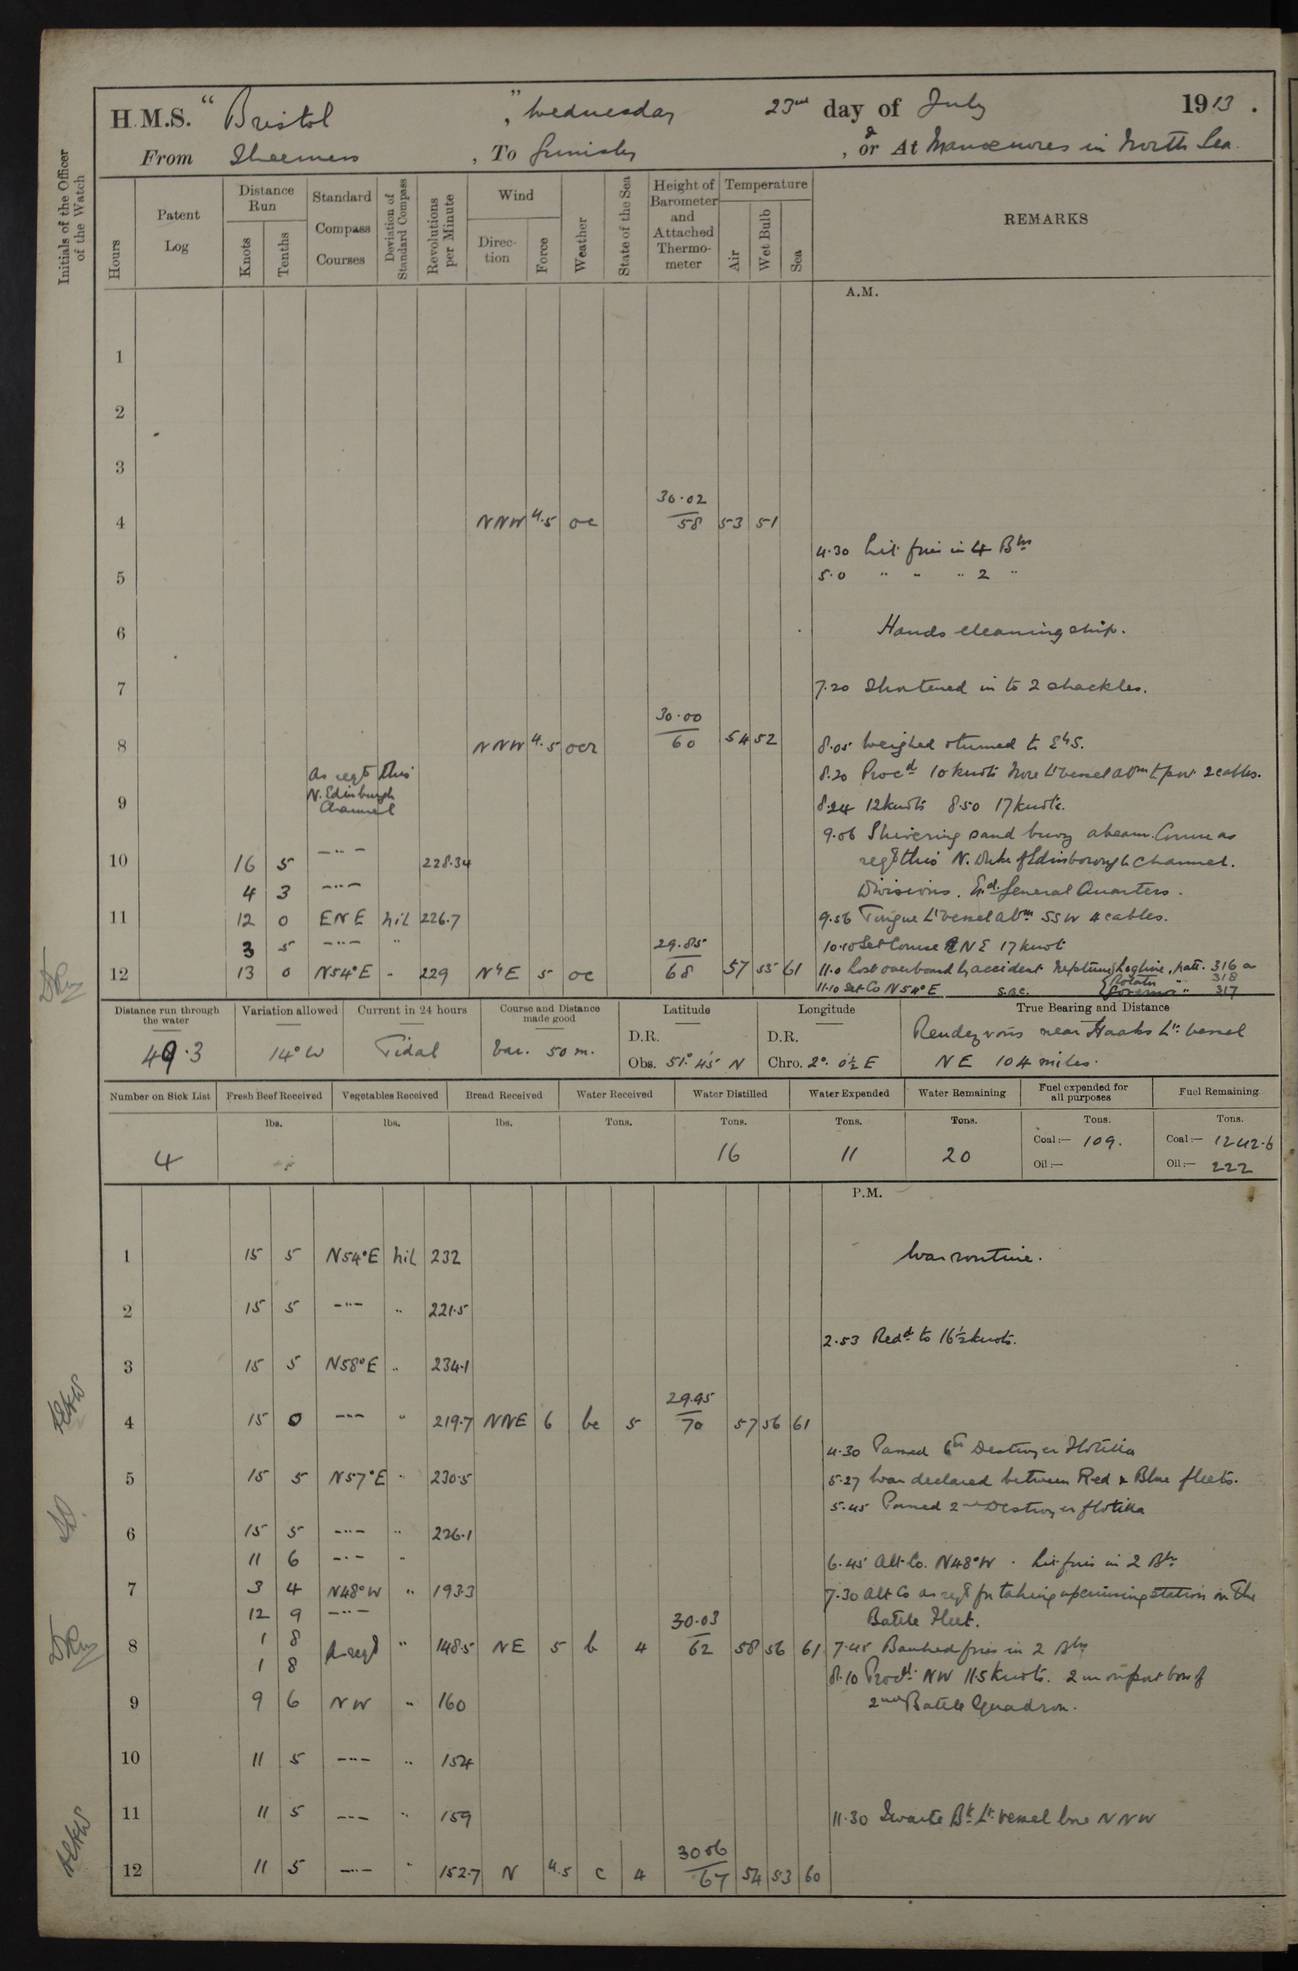 H.M.S. "Bristol", Wednesday 23rd day of July 1913.
From Sheerness, To Grimsby, & or At Manœuvres in North Sea.
Initials of the Officer of the Watch
Hours
Patent Log
Distance Run
Knots
Tenths
Standard Compass Courses
Deviation of Standard Compass
Revolutions per Minute
Wind
Direction
Force
Weather
State of the Sea
Height of Barometer and Attached Thermometer
Temperature
Air
Wet Bulb
Sea
REMARKS
A.M.
1
2
3
4 NNW 4.5 oc 30.02/58 53 51
4.30 Lit fires in 4 Brs
5
5.0 " " " 2 "
6
Hands cleaning ship.
7
7.20 Shortened in to 2 shackles.
8 NNW 4.5 ocr 30.00/60 54 52
8.05 Weighed & turned to
8.20 Procd 10 knots Nore Lt vessel abm to port 2 cables.
As reqd thro' N. Edinburgh Channel
9
8.24 12 knots 8.50 17 knots.
9.06 Shivering Sand buoy abeam. Course as
10 16 5 —"— 228.34
reqd thro' N. Duke of Edinborough Channel.
4 3 —"—
Divisions. Exd General Quarters.
11 12 0 ENE nil 226.7
9.56 Tongue Lt vessel abm SSW 4 cables.
3 5 —"— "
10.10 Set Course ENE 17 knots
12 13 0 N54°E - 229 N'E 5 oc 29.85/68 57 55 61
11.0 Lost overboard by accident Neptune logline, patt. 316 a
Rotator " 318
11.10 Set Co N54°E s.a.c. Governor " 317
Distance run through the water
49.3
Variation allowed
14° W
Current in 24 hours
Tidal
Course and Distance made good
Var. 50 m.
Latitude
D.R.
Obs. 51° 45' N
Longitude
D.R.
Chro. 2° 0½ E
True Bearing and Distance
Rendezvous near Haaks Lt. vessel
NE 104 miles.
Number on Sick List
4
Fresh Beef Received
lbs.
Vegetables Received
lbs.
Bread Received
lbs.
Water Received
Tons.
Water Distilled
Tons.
16
Water Expended
Tons.
11
Water Remaining
Tons.
20
Fuel expended for all purposes
Tons.
Coal:— 109.
Oil:—
Fuel Remaining
Tons.
Coal:— 1242.6
Oil:— 222
P.M.
1 15 5 N54°E nil 232
War routine.
2 15 5 —"— " 221.5
2.53 Redd to 16½ knots.
3 15 5 N58°E " 234.1
4 15 0 —"— " 219.7 NNE 6 bc 5 29.95/70 57 56 61
4.30 Passed 6th Destroyer Flotilla
5 15 5 N57°E " 230.5
5.27 War declared between Red & Blue fleets.
5.45 Passed 2nd Destroyer flotilla
6 15 5 —"— " 226.1
11 6 —"— "
6.45 Alt Co. N48°W. Lit fires in 2 Brs
7 3 4 N48°W " 193.3
7.30 Alt Co as reqd for taking up cruising station on the
12 9 —"—
Battle Fleet.
1 8
8 As reqd " 148.5 NE 5 b 4 30.03/62 58 56 61
7.45 Banked fires in 2 Brs
1 8
8.10 Procd NW 11.5 knots. 2 m on port bow of
9 9 6 NW " 160
2nd Battle Squadron.
10 11 5 —"— " 154
11 11 5 —"— " 159
11.30 Swarte Bk Lt. vessel bore NNW
12 11 5 —"— " 152.7 N 4.5 c 4 30.06/67 54 53 60